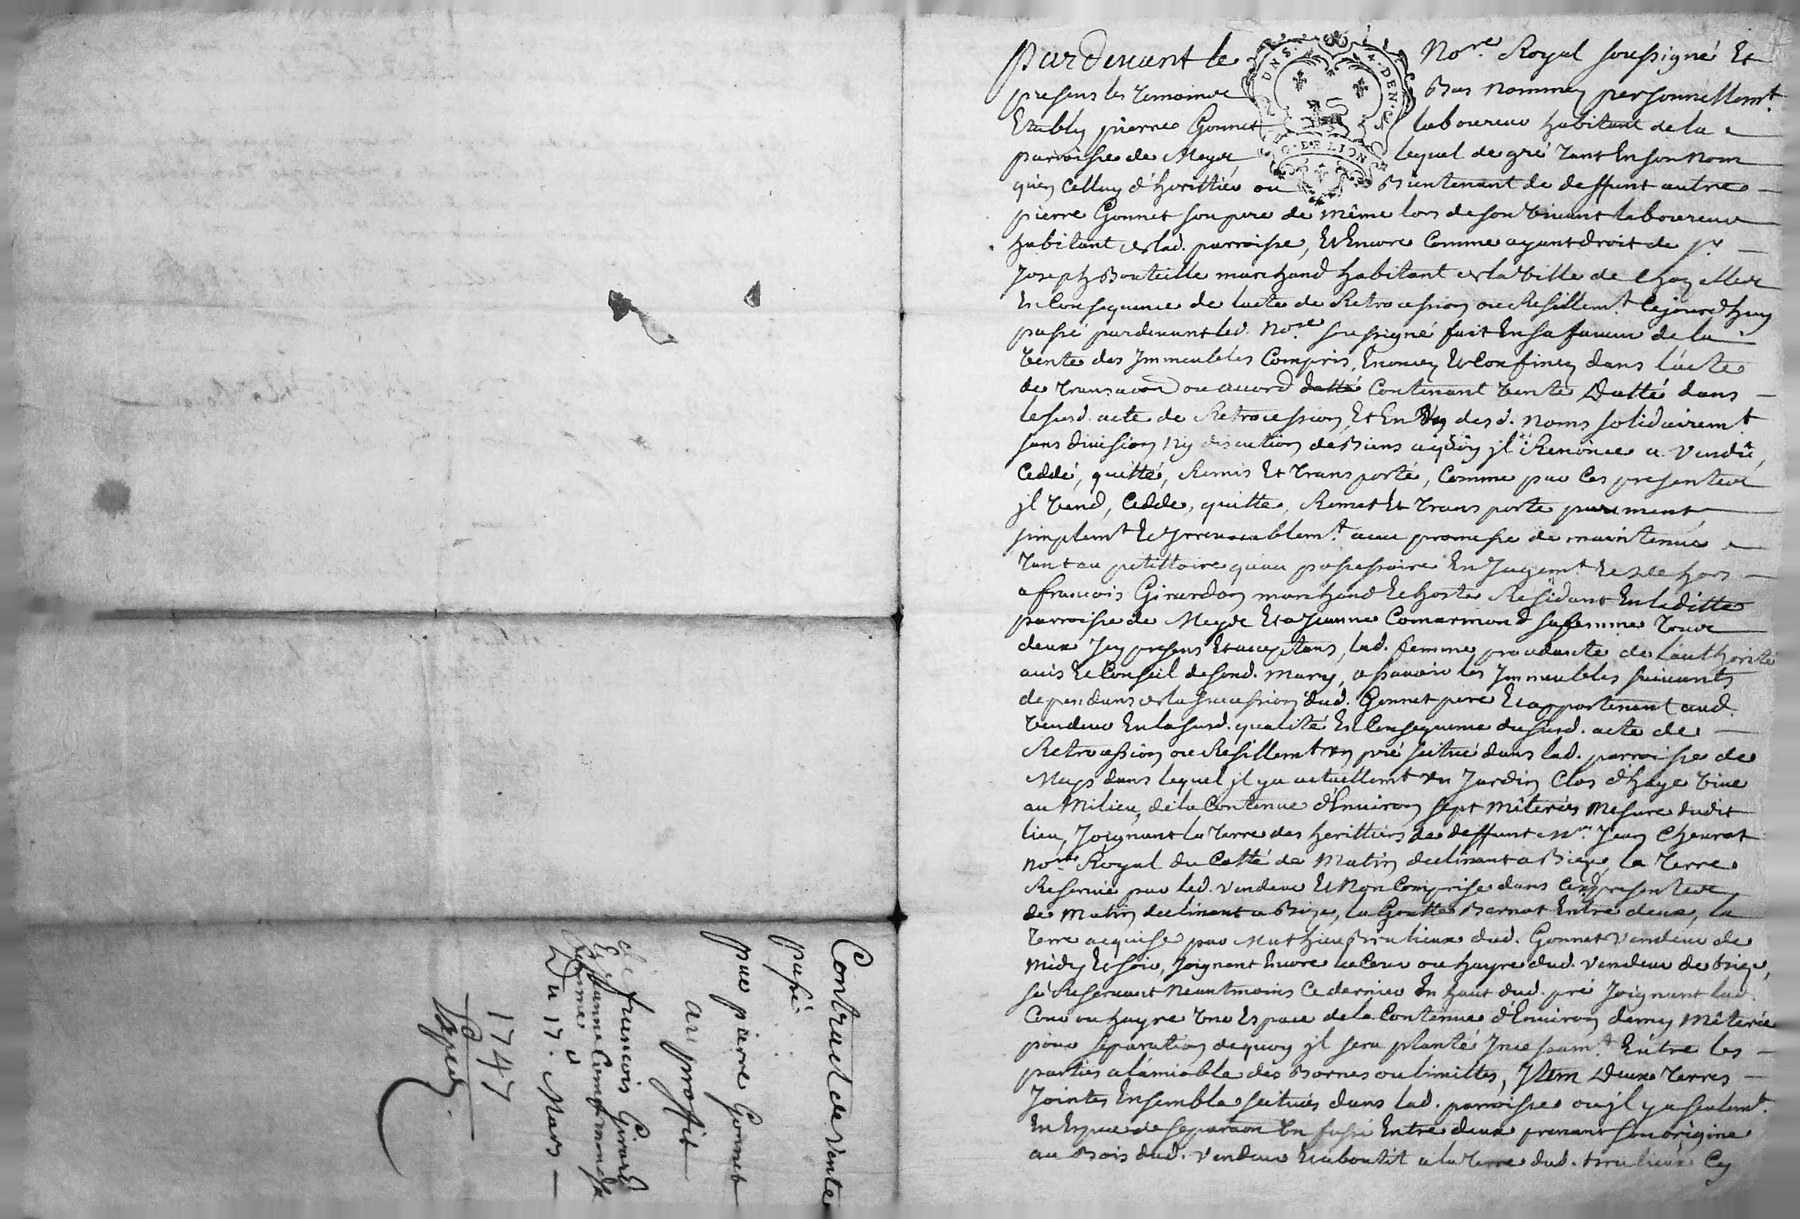 Contract de vente
passé
par pierre Gonnet
au proffit
de françois Girard
Et Jeanne Comarmond sa
femme
Du 17. Mars
1747
Pardevant le No.re Royal soussigné Et
presens les temoins Bas nommez personnellem.t
Etably pierre Gonnet laboureur habitant de la
parroisse de Meys lequel de gré tant En son nom
qu'en Celluy d'herittier ou Bientenant de deffunt autre
pierre Gonnet son pere de même lors de son vivant laboureur
habitant de lad. parroisse, Et Encore Comme ayant droit de s.r
Joseph Bouteille marchand habitant de la ville de Chazelles
En Consequence de l'acte de Retrocession ou Resillem.t Cejourd'huy
passé pardevant led. No.re soussigné fait En sa faveur de la
vente des Immeubles Compris, Enoncez Et Confinez dans l'acte
de transaction ou accord datté Contenant vente Datté dans
le susd. acte de Retrocession, Et En desd. noms solidairem.t
sans division ny discution de Biens a quoy il Renonce a vendû,
Ceddé, quitté, Remis Et transporté, Comme par Ces presentes
il vend, Cedde, quitte, Remet Et transporte purement,
simplem.t Et Irrevocablem.t avec promesse de maintenue
tant au petittoire qu'au possessoire En Jugem.t Et dehors
a françois Girardon marchand Et hoste Residant En laditte
parroisse de Meys Et a Jeanne Comarmond sa femme tous
deux Icy presens Et acceptans, lad. femme procedante de l'authorité
avis Et Conseil de sond. mary, a sçavoir les Immeubles suivants
dependans de la succession dud. Gonnet pere Et appartenant aud.
vendeur En la susd. qualité En Consequence du susd. acte de
Retrocession ou Resillem.t un pré scitué dans lad. parroisse de
Meys dans lequel il y a actuellem.t un Jardin Clos d'haye vive
au Milieu, de la Contenue d'Environ sept mêterées mesure dudit
lieu, Joignant la terre des heritiers de deffunt M.re Jean Chevrot
No.re Royal du Cotté de Matin declinant a Bize, la terre
Reservée par led. vendeur Et non Comprise dans Ces presentes
de Matin declinant a Bize, la Goutte Bernat Entre deux, la
terre acquise par Mathieu Brulieux dud. Gonnet vendeur de
Midy Et soir, Joignant Encore la Cour ou hayre dud. vendeur de bize,
se Reservant Neantmoins Ce dernier En haut dud. pré Joignant lad.
Cour ou hayre Une Espace de la Contenue d'Environ demy Mêterée
pour separation de quoy il sera planté Incessam.t Entre les
parties a l'amiable des Bornes ou limittes, Item Deux terres
Jointes Ensemble scitués dans lad. parroisse ou il y a seulem.t
En Espece de separaon Un fossé Entre deux prenant son origine
au Bois dud. vendeur Et aboutit a la terre dud. Brulieux Cy